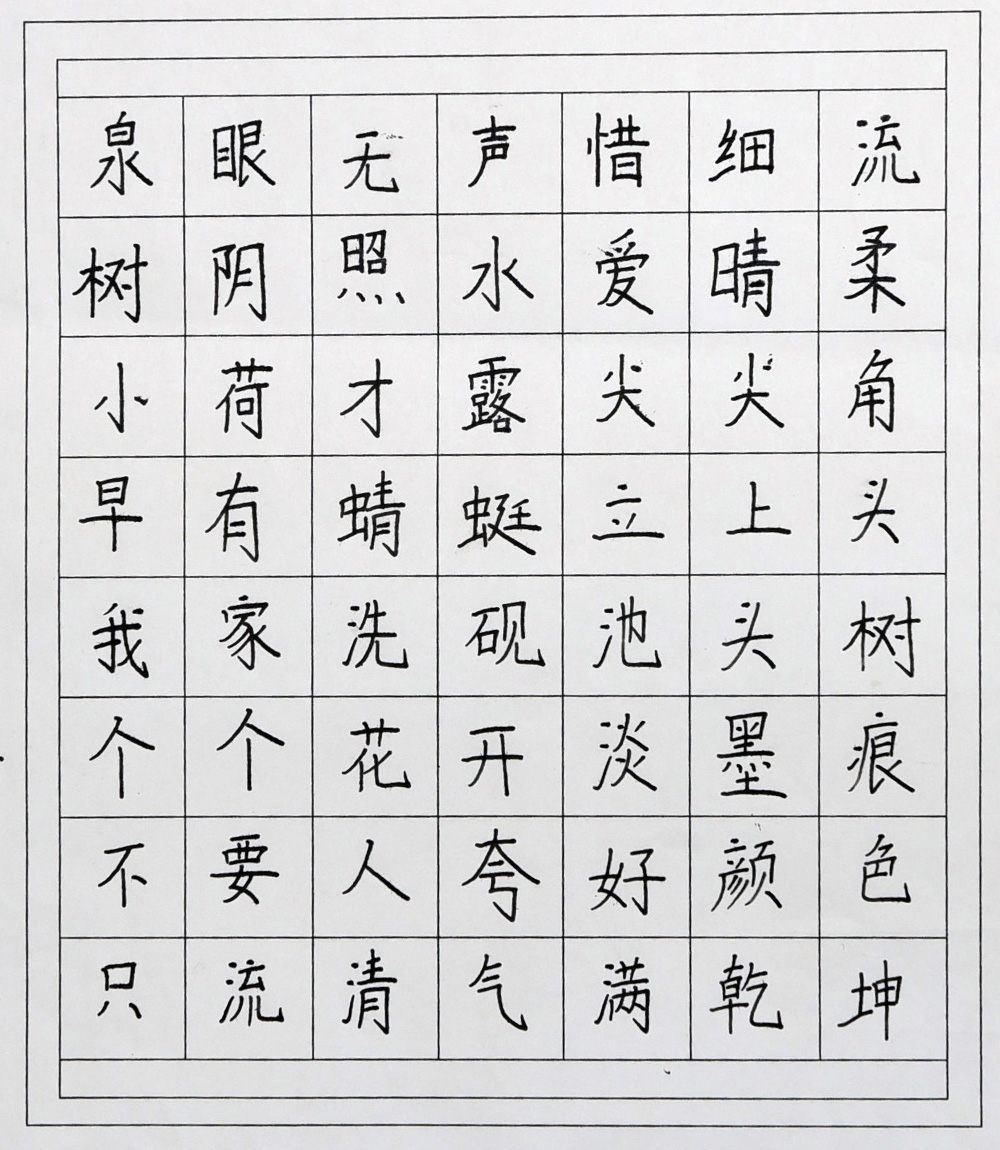 泉眼无声惜细流
树阴照水爱晴柔
小荷才露尖尖角
早有蜻蜓立上头
我家洗砚池头树
个个花开淡墨痕
不要人夸好颜色
只流清气满乾坤